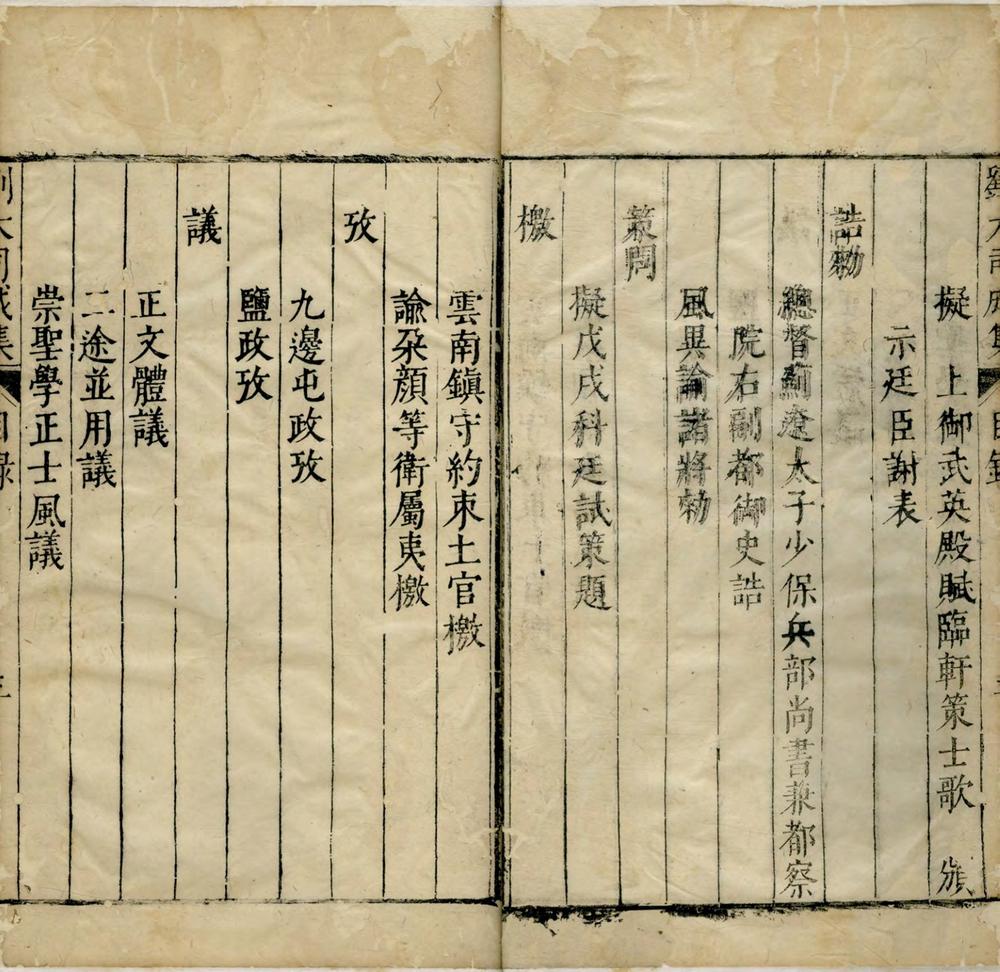 擬　上御武英殿賦臨軒策士歌　頒
示廷臣謝表
誥勑
總督薊遼太子少保兵部尚書兼都察
院右副都御史誥
風異諭諸將勑
策問
擬戊戌科廷試策題
檄
雲南鎮守約束土官檄
諭朶顔等衛屬夷檄
攷
九邊屯政攷
鹽政攷
議
正文體議
二途並用議
崇聖學正士風議